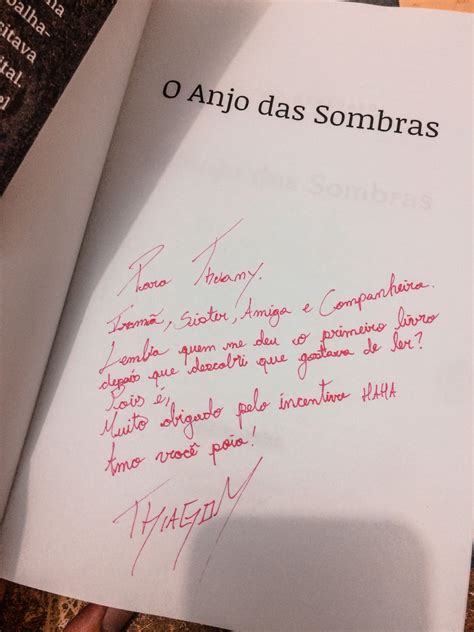 balha-
citava
ital.
el
O Anjo das Sombras
Para Thebany.
Irmã, Sister, Amiga e Companheira.
Lembra quem me deu o primeiro livro
depois que descobri que gostava de ler?
Pois é,
Muito obrigado pelo incentivo HAHA
Amo você poia!
THIAGO M